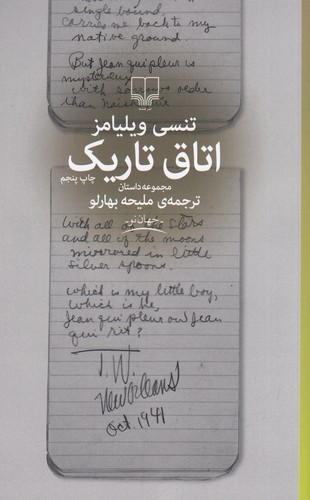 single bound,
carries me back to my
native ground.
But Jean qui pleure is
mysterious
with sorrows older
than
تنسی ویلیامز
اتاق تاریک
چاپ پنجم
مجموعه داستان
ترجمه‌ی ملیحه بهارلو
جهان‌نو
With all of the stars
and all of the moons
mirrored in little
silver spoons.
which is my little boy,
which is he,
Jean qui pleure ou Jean
qui rit?
T. W.
New Orleans
Oct. 1941